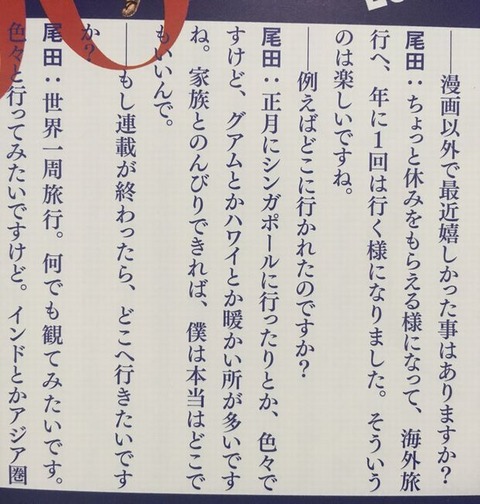 ──漫画以外で最近嬉しかった事はありますか？
尾田：ちょっと休みをもらえる様になって、海外旅
行へ、年に1回は行く様になりました。そういう
のは楽しいですね。
──例えばどこに行かれたのですか？
尾田：正月にシンガポールに行ったりとか、色々で
すけど、グアムとかハワイとか暖かい所が多いです
ね。家族とのんびりできれば、僕は本当はどこで
もいいんで。
──もし連載が終わったら、どこへ行きたいです
か？
尾田：世界一周旅行。何でも観てみたいです。
色々と行ってみたいですけど。インドとかアジア圏